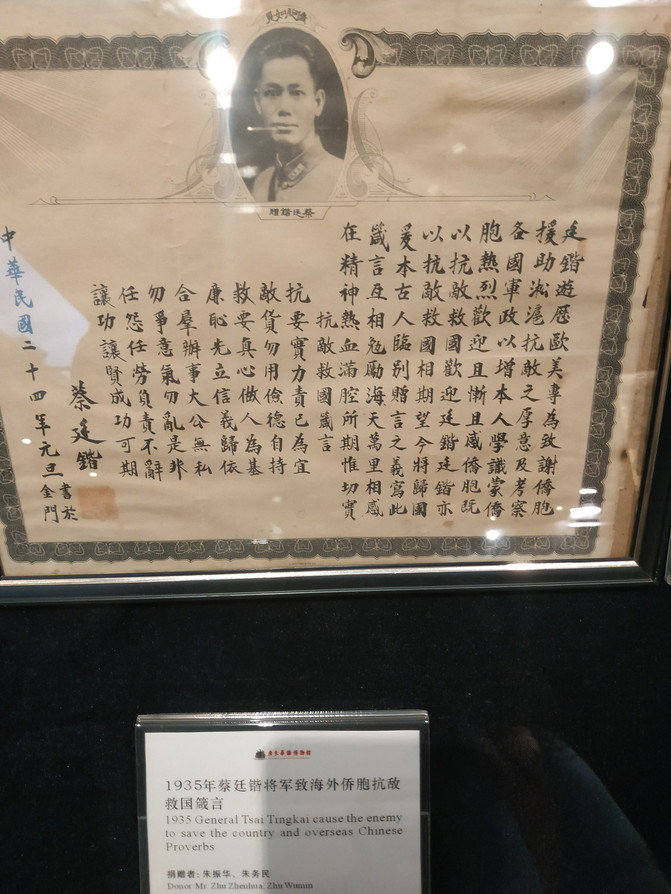 蔡廷鍇贈
廷鍇遊歷歐美專為致謝僑胞
援助淞滬抗敵之厚意及考察
各國軍政以增本人學識蒙僑
胞熱烈歡迎且慚且感僑胞既
以抗敵救國歡迎廷鍇廷鍇亦
以抗敵救國相期望今將歸國
爰本古人臨別贈言之義寫此
箴言互相勉勵海天萬里相感
在精神熱血滿腔所期惟切實
抗敵救國箴言
抗要實力責己為宜
敵貨勿用儉德自持
救要真心做人為基
廉恥先立信義歸依
合羣辦事大公無私
勿爭意氣勿亂是非
任怨任勞負責不辭
讓功讓賢成功可期
蔡廷鍇
書於
金門
中華民國二十四年元旦
广东华侨博物馆
1935年蔡廷锴将军致海外侨胞抗敌
救国箴言
1935 General Tsai Tingkai cause the enemy
to save the country and overseas Chinese
Proverbs
捐赠者:朱振华、朱务民
Donor Mr. Zhu Zhenhua, Zhu Wumin